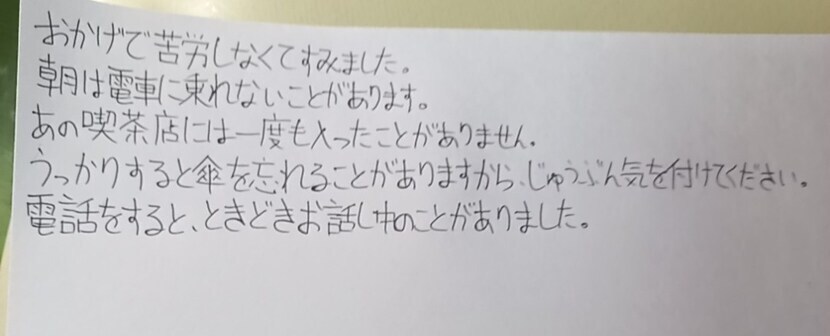 おかげで苦労しなくてすみました。
朝は電車に乗れないことがあります。
あの喫茶店には一度も入ったことがありません。
うっかりすると傘を忘れることがありますから、じゅうぶん気を付けてください。
電話をすると、ときどきお話し中のことがありました。